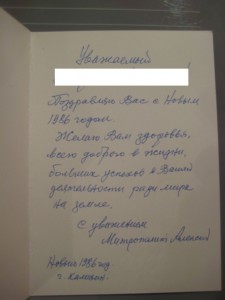 Уважаемый
Поздравляю Вас с Новым
1986 годом.
Желаю Вам здоровья,
всего доброго в жизни,
больших успехов в Вашей
деятельности ради мира
на земле.
С уважением
Митрополит Алексий
Новый 1986 год
г.